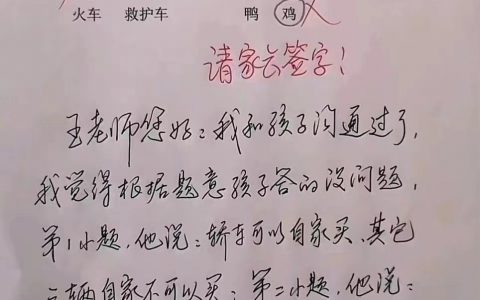 火车 救护车 鸭 鸡
请家长签字!
王老师您好:我和孩子沟通过了,
我觉得根据题意孩子答的没问题,
第1小题,他说:轿车可以自家买,其它
三辆自家不可以买;第二小题,他说: